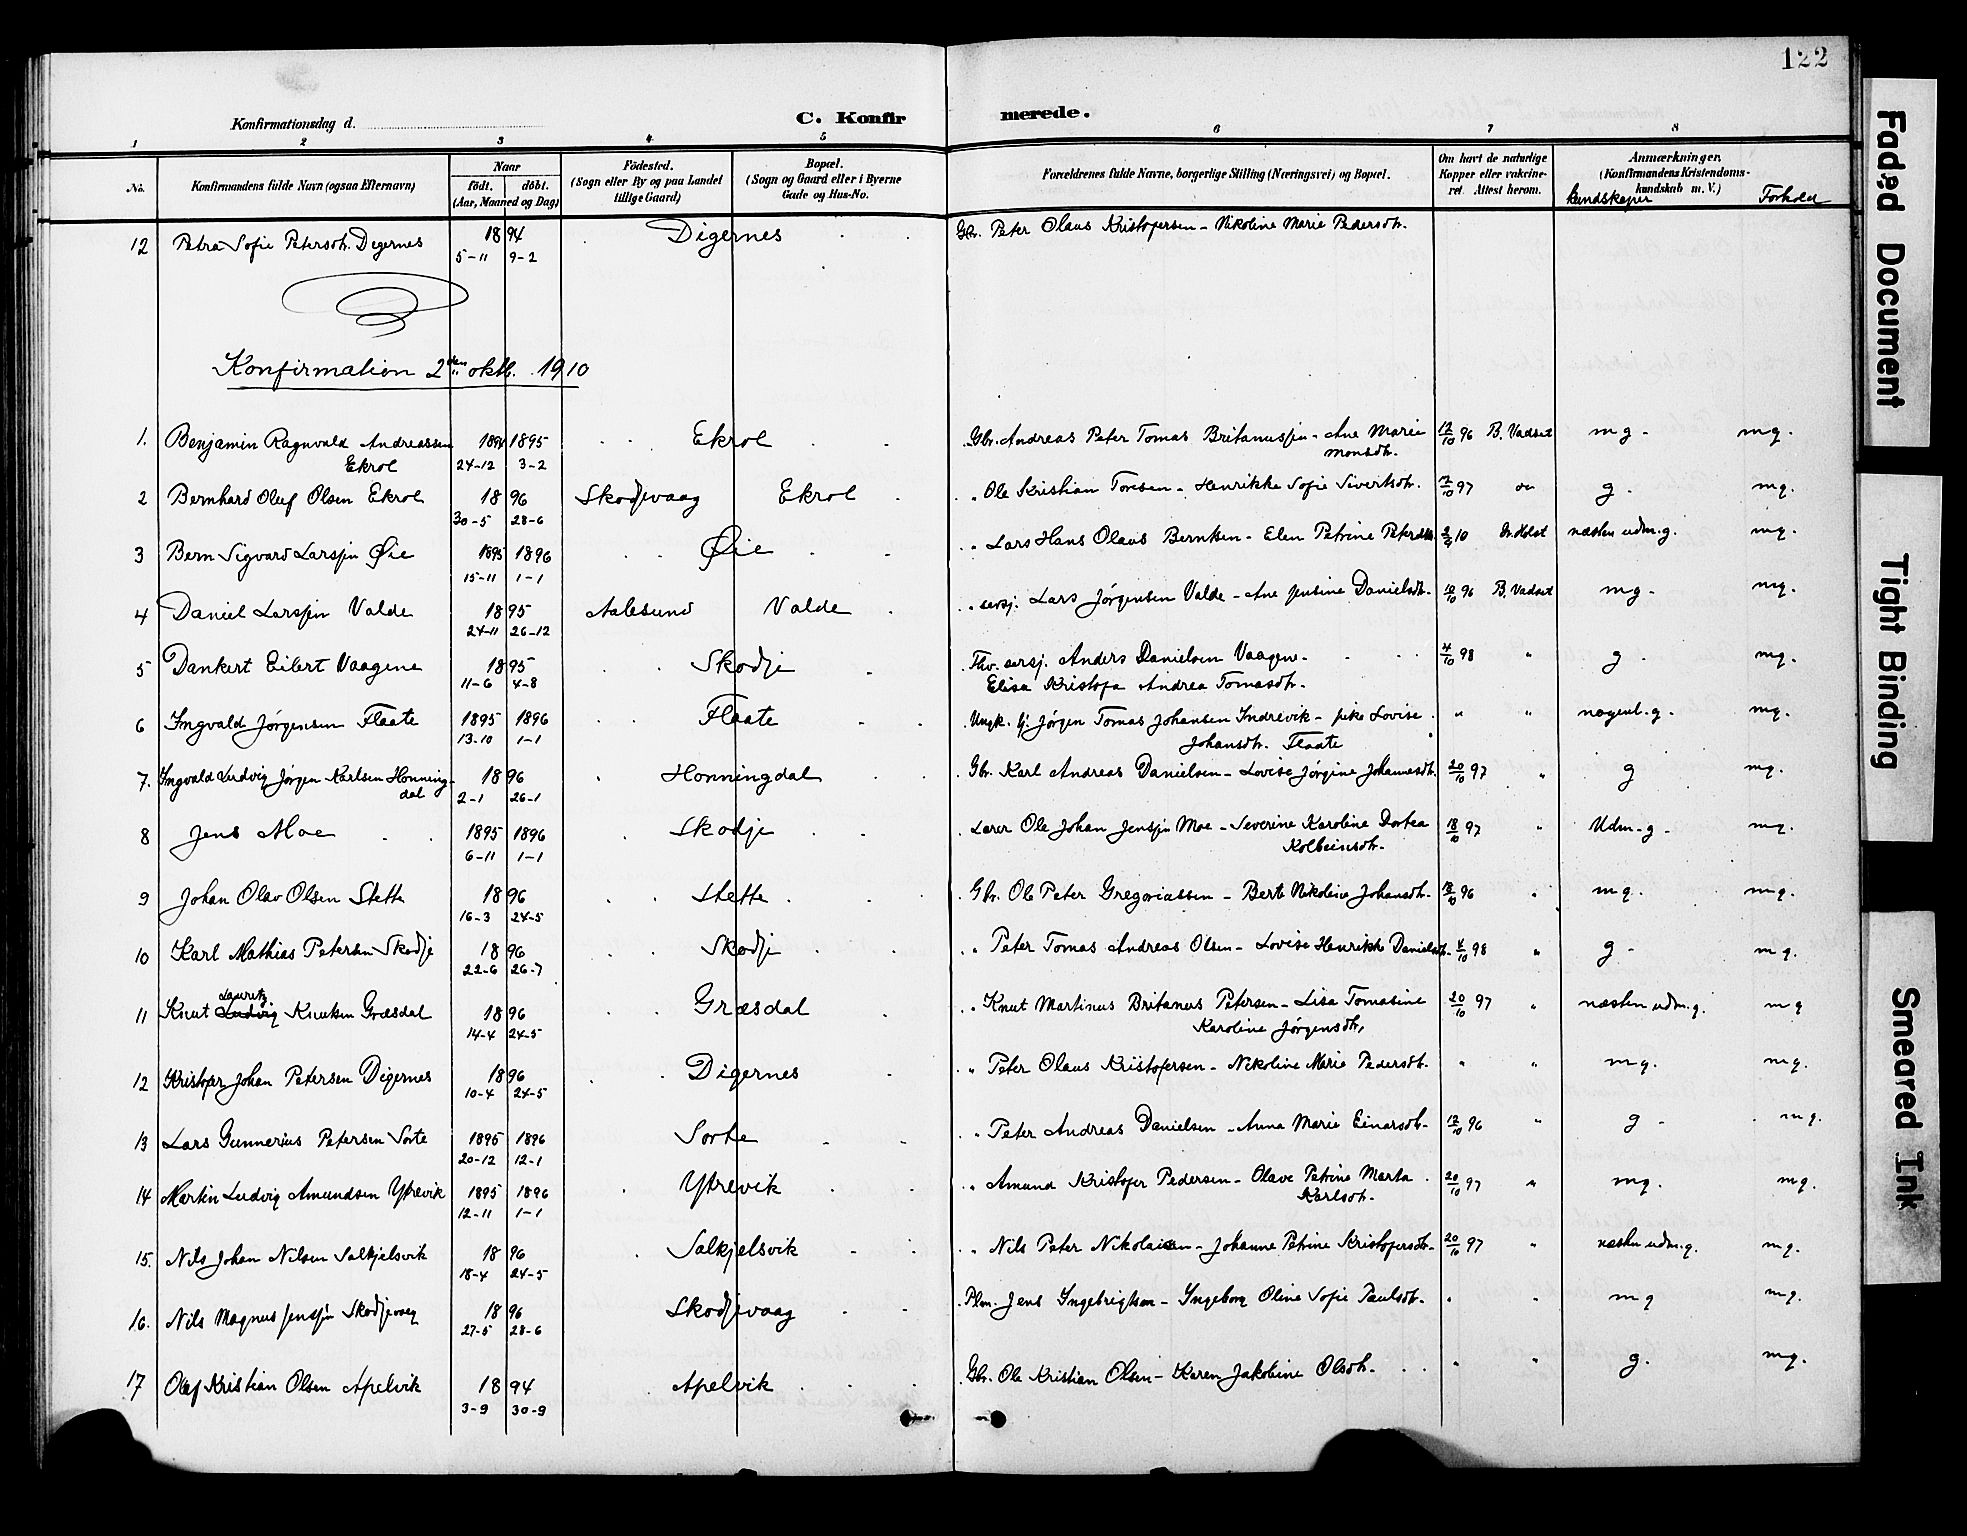 122
Konfirmationsdag d.
C. Konfirmerede.
1 2 3 4 5 6 7 8
No. Konfirmandens fulde Navn (ogsaa Efternavn) Naar født. døbt. (Aar, Maaned og Dag) Födested. (Sogn eller By og paa Landet tillige Gaard) Bopæl. (Sogn og Gaard eller i Byerne Gade og Hus-No. Forældrenes fulde Navne, borgerlige Stilling (Næringsvei) og Bopæl. Om havt de naturlige Kopper eller vakcineret. Attest herom. Anmærkninger. (Konfirmandens Kristendomskundskab m. V.)
kundskaper Forhold
12 Petra Sofie Petersdtr. Digernes 1894 Digernes Gbr. Peter Olaus Kristofersen - Nikoline Marie Pedersdtr.
5-11 9-2
Konfirmation 2den oktb. 1910
1. Benjamin Ragnvald Andreassen 1894 1895 Ekrol Gbr. Andreas Peter Tomas Britanussen - Ane Marie 12/10 96 B. Vadset mg - mg.
Ekrol 24-12 3-2 Monsdtr.
2 Bernhard Oluf Olsen Ekrol 1896 Skodjevaag Ekrol " Ole Kristian Toresen - Henrikke Sofie Sivertsdtr. 97 g. mg.
30-5 28-6
3 Bern Sigvard Larssen Øie 1895 1896 Øie " Lars Hans Olaus Berntsen - Elen Petrine 10 næsten udm.g. mg.
15-11 1-1
4 Daniel Larssen Valde 1895 Aalesund Valde " sersj. Lars Jørgensen Valde - Ane Jensine Danielsdtr. 96 B. Vadset mg - mg.
24-11 26-12
5 Dankert Eilert Vaagene 1895 Skodje Fhv. sersj. Anders Danielsen Vaagene. 4/10 98 " g. mg.
11-6 4-8 Elisa Kristofa Andrea Tomasdtr.
6 Ingvald Jørgensen Flaate 1895 1896 Flaate Ungk. Jørgen Tomas Johansen Indrevik - pike Lovise " " nogenl. g. mg.
13-10 1-1 Johansdtr. Flaate
7. Ingvald Ludvig Jørgen Karlsen Honning- 1896 Honningdal Gbr. Karl Andreas Danielsen - Lovise Jørgine Johannesdtr. 20/10 97 " g mg.
dal 2-1 26-1
8 Jens Moe 1895 1896 Skodje Lærer Ole Johan Jenssen Moe - Severine Karoline Dortea 18/10 97 " Udm-g. mg.
6-11 1-1 Kolbeinsdtr.
9 Johan Olav Olsen Stette 1896 Stette Gbr. Ole Peter Gregoriassen - Berte Nikoline Johansdtr. 96 " mg. mg.
16-3 24-5
10 Karl Mathias Petersen Skodje 1896 Skodje " Peter Tomas Andreas Olsen - Lovise Henrikke Danielsdtr. 4/10 98 " g - mg.
22-6 26-7
Lauritz
11 Knut Ludvig Knutsen Græsdal 1896 Græsdal " Knut Martinus Britanus Petersen - Lisa Tomasine 20/10 97 " næsten udm.g. mg
14-4 24-5 Karoline Jørgensdtr.
12 Kristofer Johan Petersen Digernes 1896 Digernes " Peter Olaus Kristofersen - Nikoline Marie Pedersdtr. " " mg. mg.
10-4 24-5
13 Lars Gunnerius Petersen Sorte 1895 1896 Sorte " Peter Andreas Danielsen - Anna Marie Einarsdtr. 12/10 96 " g - mg.
20-12 12-1
14 Martin Ludvig Amundsen Ytrevik 1895 1896 Ytrevik " Amund Kristofer Pedersen - Olave Petrine Marta 20/10 97 " mg. mg.
12-11 1-1 Karlsdtr.
15. Nils Johan Nilsen Salkjelsvik 1896 Salkjelsvik " Nils Peter Nikolaisen - Johanne Petrine Kristofersdtr. 20/10 97 " næsten udm.g. mg.
18-4 24-5
16. Nils Magnus Jenssen Skodjevaag 1896 Skodjevaag Plm. Jens Ingebrigtsen - Ingeborg Oline Sofie Paulsdtr. " " mg mg.
27-5 28-6
17 Olaf Kristian Olsen Apelvik 1894 Apelvik Gbr. Ole Kristian Olsen - Karen Jakobine Olsdtr. " " g. mg.
3-9 30-9
Faded Document
Tight Binding
Smeared Ink